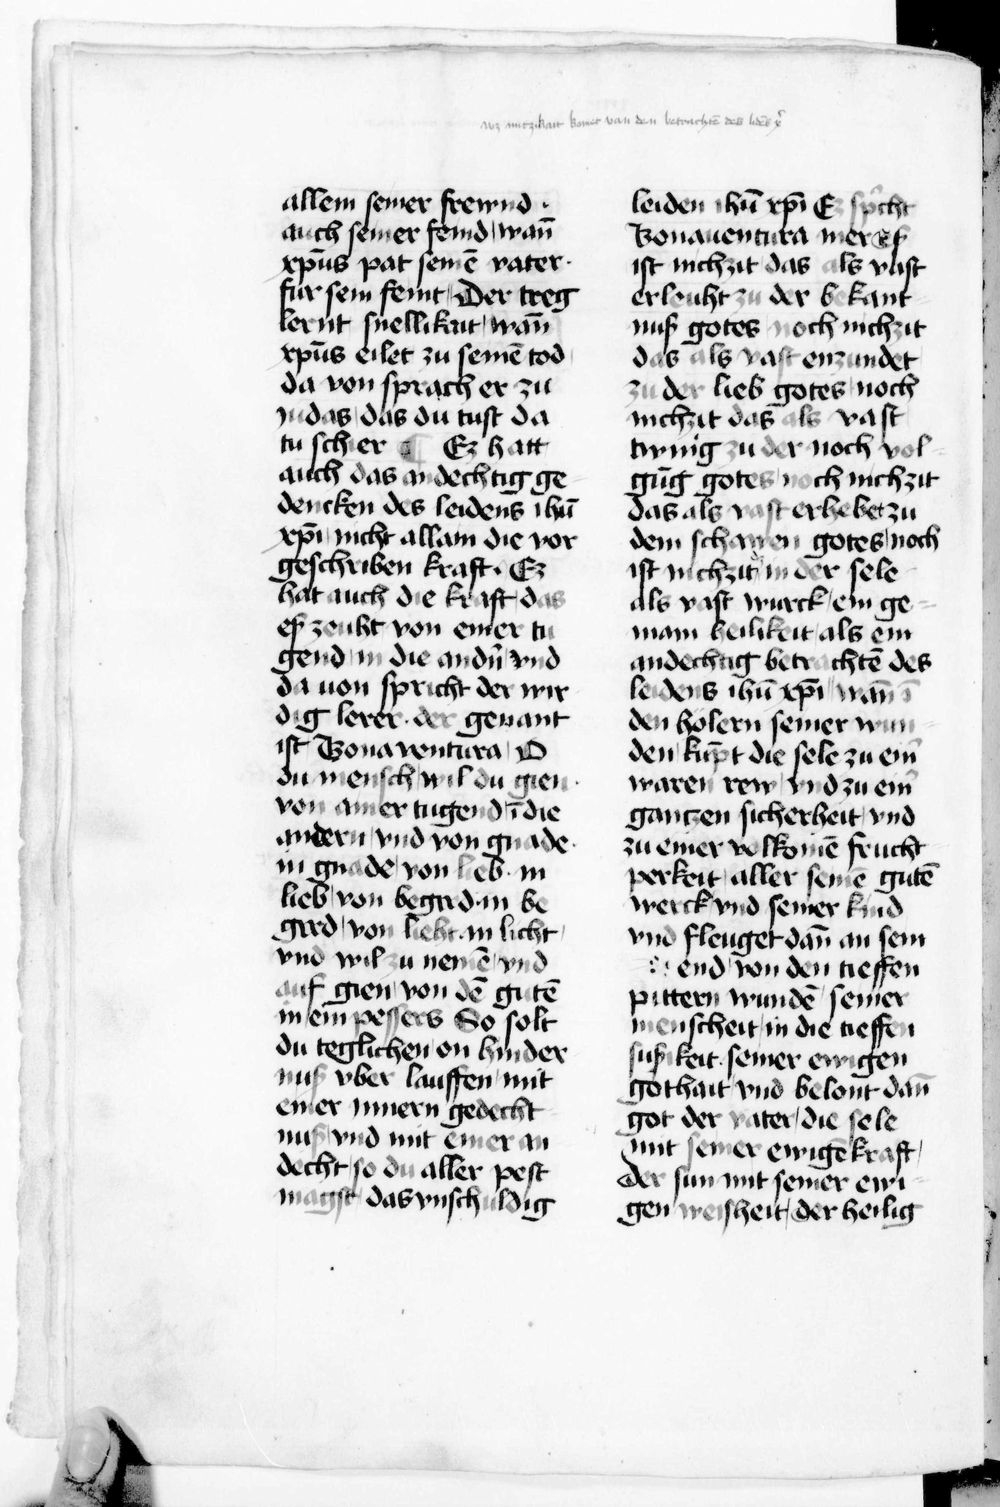 wz nutzikait komet van den betrachtē des lidēs x̄
allem seiner frewnd ·
auch seiner feind / wañ
xp̄us pat seinē vater ·
fur sein feint / Der treg
lernt snellikait / wañ
xp̄us eilet zu seinē tod
da von sprach er zu
iudas / das du tust da
tu schier ¶ Ez hatt
auch das andechtig ge
dencken des leidens ihū
xp̄i / nicht allain die vor
geschriben kraft · Ez
hat auch die kraft / das
eß zeuht von einer tu
gend / in die andn̄ / vnd
da uon spricht der wir
dig lerer · der genant
ist Bonaventura / O
du mensch / wil du gien ·
von ainer tugend / ī die
andern / vnd von gnade ·
in gnade / von lieb · in
lieb / von begerd · in be
gerd / von licht · in licht /
vnd wil zu nemē / vnd
auf gien / von dē gutē
in ein pessers So solt
du teglichen / on hinder
nuß vber lauffen / mit
einer innern gedecht
nuß / vnd mit einer an
decht / so du aller pest
magst / das vnschuldig
leiden ihū xp̄i Ez sp̄cht
Bonauentura mer Eß
ist nichzit / das als vast
erleuht zu der bekant
nuß gotes / noch nichzit
das als vast enzundet
zu der lieb gotes / noch
nichzit das als vast
twnig zu der noch vol
gūg gotes / noch nichzit
das als vast erhebet zu
dem schawen gotes / noch
ist nichzit / in der sele
als vast wurck / ein ge
main heilikeit / als ein
andechtig betrachtē des
leidens ihū xp̄i / wañ ī
den holern seiner wun
den / kūpt die sele zu eim̄
waren rew / vnd zu eim̄
gantzen sicherheit / vnd
zu einer volkomē frucht
perkeit / aller seinē gutē
werck / vnd seiner kind
vnd fleuget dañ an sein
end / von den tieffen
pittern wundē / seiner
menscheit / in die tieffen
sußikeit · seiner ewigen
gothait / vnd belont dañ
got der vater / die sele
mit seiner ewigē kraft /
der sun mit seiner ewi
gen weisheit / der heilig